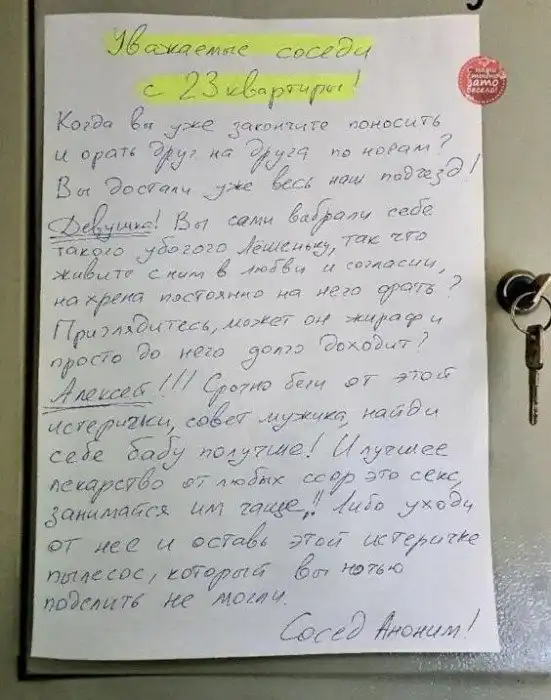 Уважаемые соседи
с 23 квартиры!
Когда вы уже закончите поносить
и орать друг на друга по ночам?
Вы достали уже весь наш подъезд!
Девушка! Вы сами выбрали себе
такого убогого Лёшеньку, так что
живите с ним в любви и согласии,
нахрена постоянно на него орать?
Приглядитесь, может он жираф и
просто до него долго доходит?
Алексей!!! Срочно беги от этой
истерички, совет мужика, найди
себе бабу получше! И лучшее
лекарство от любых ссор это секс,
занимайся им чаще!! Либо уходи
от нее и оставь этой истеричке
пылесос, который вы ночью
поделить не могли.
Сосед Аноним!
зато
весело!